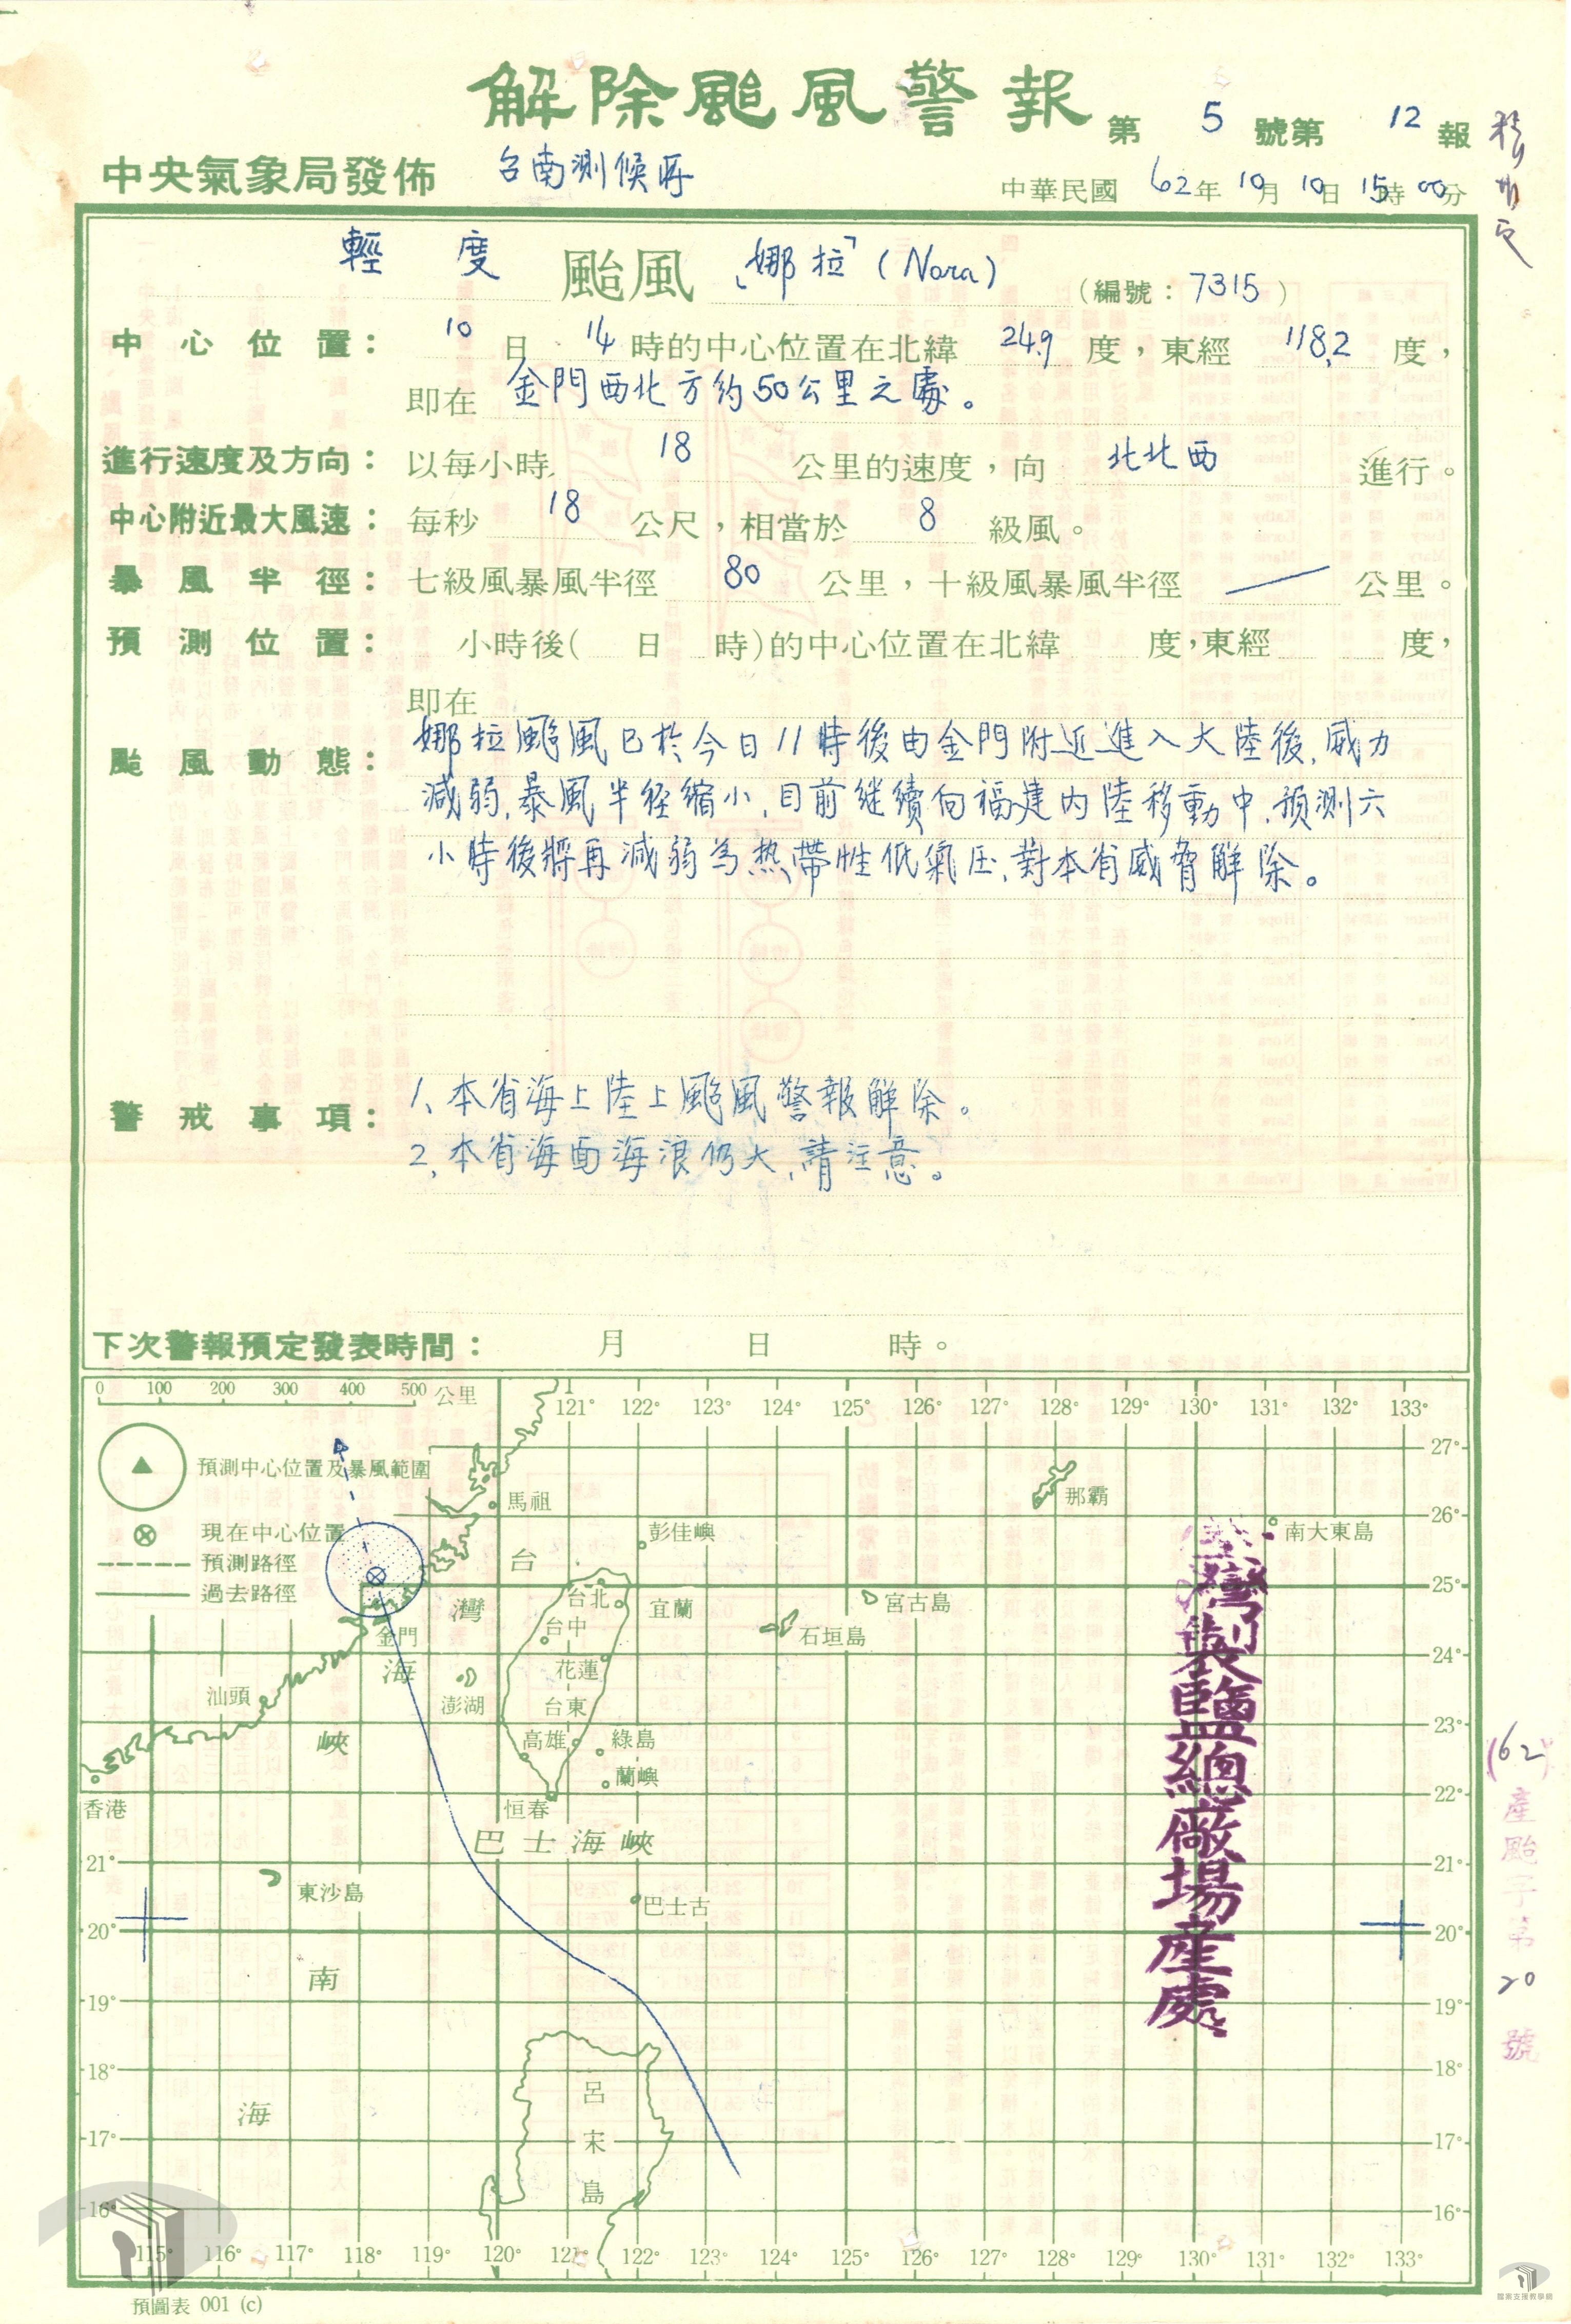 解除颱風警報 第 5 號第 12 報
中央氣象局發佈 台南測候所 中華民國 62年 10月 10日 15時 00分
輕度 颱風 「娜拉」(Nora) (編號：7315)
中心位置： 10日 14時的中心位置在北緯 24.9 度，東經 118.2 度，
即在 金門西北方約50公里之處。
進行速度及方向： 以每小時 18 公里的速度，向 北北西 進行。
中心附近最大風速： 每秒 18 公尺，相當於 8 級風。
暴風半徑： 七級風暴風半徑 80 公里，十級風暴風半徑 — 公里。
預測位置： 小時後( 日 時)的中心位置在北緯 度，東經 度，
即在
颱風動態： 娜拉颱風已於今日11時後由金門附近進入大陸後，威力
減弱，暴風半径縮小，目前继續向福建內陸移動中，预測六
小時後將再減弱為热帶性低氣压，對本省威脅解除。
警戒事項： 1、本省海上陸上颱風警報解除。
2、本省海面海浪仍大，請注意。
下次警報預定發表時間： 月 日 時。
0 100 200 300 400 500 公里
121° 122° 123° 124° 125° 126° 127° 128° 129° 130° 131° 132° 133°
預測中心位置及暴風範圍
現在中心位置
預測路徑
過去路徑
27°
26°
25°
24°
23°
22°
21°
20°
19°
18°
17°
16°
馬祖
彭佳嶼
那霸
南大東島
台灣海峽
台北
宜蘭
宮古島
台中
石垣島
金門
花蓮
汕頭
澎湖
台東
高雄
綠島
蘭嶼
香港
恒春
巴士海峽
東沙島
巴士古
南海
呂宋島
21°
20°
19°
18°
17°
16°
115° 116° 117° 118° 119° 120° 121° 122° 123° 124° 125° 126° 127° 128° 129° 130° 131° 132° 133°
臺灣製鹽總廠場產處
(62)產颱字第20號
預圖表 001 (c)
檔案支援教學網